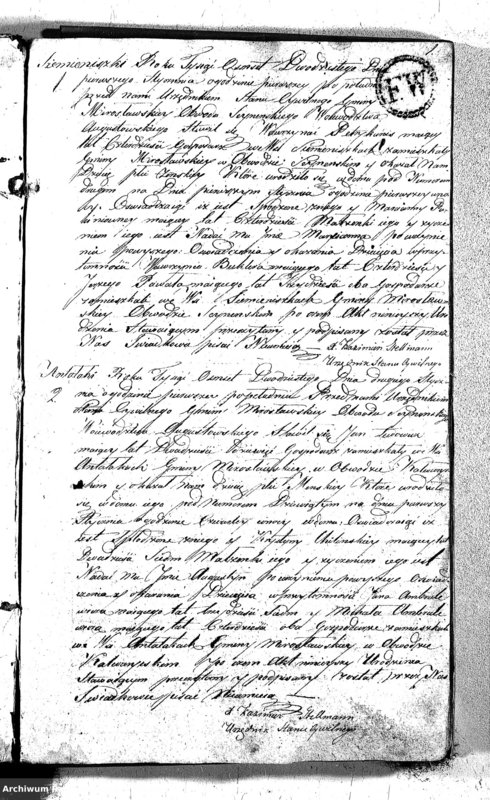 1.
FW
Siemieniszki Roku Tysiąc Ośmset Dwudziestego Dnia
1 pierwszego Stycznia o godzinie pierwszey po południu
przed nami Urzędnikiem Stanu Cywilnego Gminy
Mirosławskiey Obwodu Seyneńskiego Wojewodztwa
Augustowskiego Stawił się Wawrzyniec maiący
lat Czterdzieści Gospodarz we Wsi Siemieniszkach zamieszkały
Gminy Mirosławskiey w Obwodzie Seyneńskim y okazał Nam
Dziecię płci Zenskiey Które urodziło się w domu pod Numerem
drugim na Dniu pierwszym Stycznia o godzinie pierwszey
Oswiadczaiąc iż iest Spłodzone z niego y Maryanny
maiącey lat Czterdzieści Małżonki iego y życze
niem iego iest Nadać Mu Imie Maryanna, po uczynie
niu powyższego Oswiadczenia y okazaniu Dziecięcia w przy
tomności Wawrzyna maiącego lat Czterdzieści y
Jerzego maiącego lat Trzydzieści obu Gospodarze
zamieszkali we Wsi Siemieniszkach Gminy Mirosław
skiey Obwodzie Seyneńskim po czym Akt ninieyszy Uro
dzenia Stawaiącym przeczytany y podpisany został przez
Nas Swiadkowie pisać Nieumieią
X Kazimierz Stellmann
Urzędnik Stanu Cywilnego
Antolaki Roku Tysiąc Ośmset Dwudziestego Dnia drugiego Stycz
2 nia o godzinie pierwszey popołudniu Przed nami Urzędnikiem
Stanu Cywilnego Gminy Mirosławskiey Obwodu Seyneńskiego
Woiewodztwa Augustowskiego Stawił się Jan
maiący lat Gospodarz zamieszkały we Wsi
Antałakach Gminy Mirosławskiey w Obwodzie Kalwaryi
skim y okazał nam dziecię płci Męskiey Które urodziło
się w domu iego pod Numerem Dziewiątym na dniu pierwszy
Stycznia o godzinie w domu Oswiadczaiąc iż
iest Spłodzone z niego y Krystyny maiącey lat
Dwadzieścia Siedm Małżonki iego y życzeniem iego iest
Nadać Mu Imie Augustyn Po uczynieniu powyższego Oswiad
czenia y okazaniu Dziecięcia w przytomności Jana
maiącego lat Siedm y Michała
maiącego lat Czterdzieści obu Gospodarze zamieszkali
we Wsi Antałakach Gminy Mirosławskiey w Obwodzie
Kalwaryiskim po czym Akt ninieyszy Urodzenia
Stawaiącym przeczytany y podpisany został przez Nas
Swiadkowie pisać Nieumieią
X Kazimierz Stellmann
Urzędnik Stanu Cywilnego
Archiwum